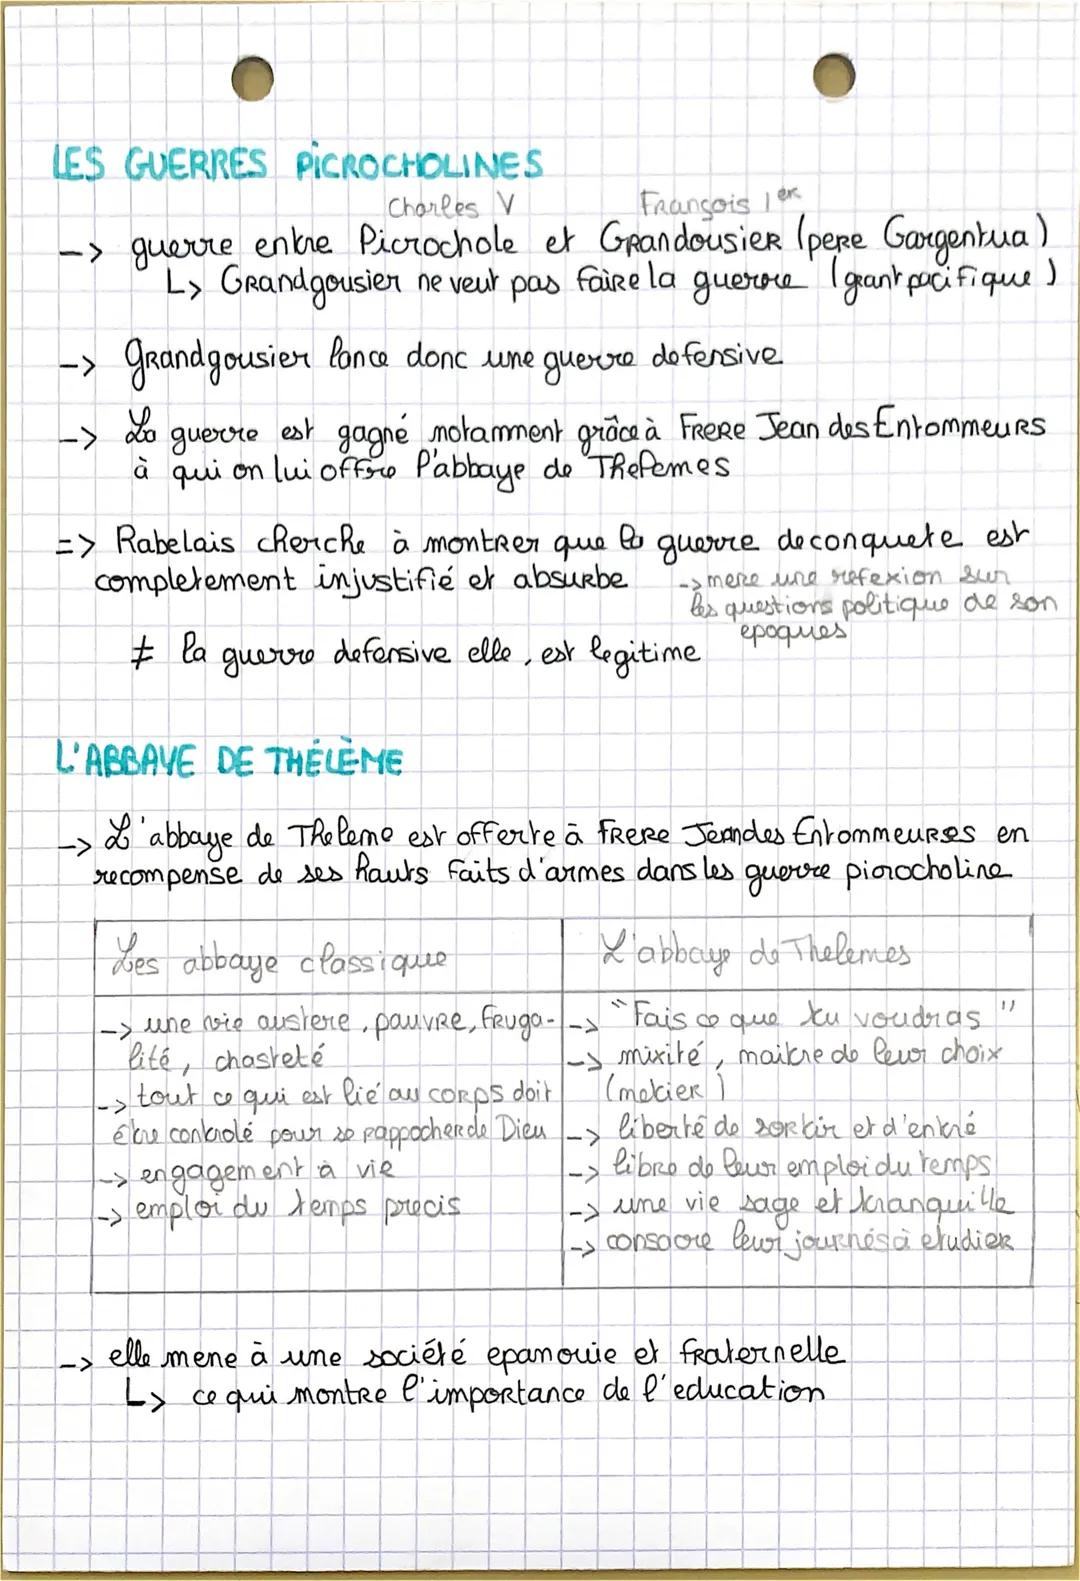 LES GUERRES PICROCHOLINES
Charles V François 1er
-> guerre entre Picrochole et Grandousier (pere Gargentua)
↳ Grandgousier ne veut pas faire la guerre (geant pacifique)
-> Grandgousier lance donc une guerre defensive
-> La guerre est gagné notamment grâce à Frere Jean des Entommeurs
à qui on lui offre l'abbaye de Thelemes
=> Rabelais cherche à montrer que la guerre de conquete est
completement injustifié et absurbe -> mene une refexion sur
les questions politique de son
epoques
≠ la guerre defensive elle, est legitime
L'ABBAYE DE THÉLÈME
-> L'abbaye de Theleme est offerte à Frere Jean des Entommeures en
recompense de ses hauts faits d'armes dans les guerre picrocholine
Les abbaye classique
-> une vie austere, pauvre, fruga-
lité, chasteté
-> tout ce qui est lié au corps doit
être controlé pour se rappocher de Dieu
-> engagement à vie
-> emploi du temps precis
L'abbaye de Thelemes
-> "Fais ce que tu voudras"
-> mixité, maitre de leur choix
(metier)
-> liberté de sortir et d'entré
-> libre de leur emploi du temps
-> une vie sage et tranquille
-> consacre leur journés à etudier
-> elle mene à une société epanouie et fraternelle
↳ ce qui montre l'importance de l'education